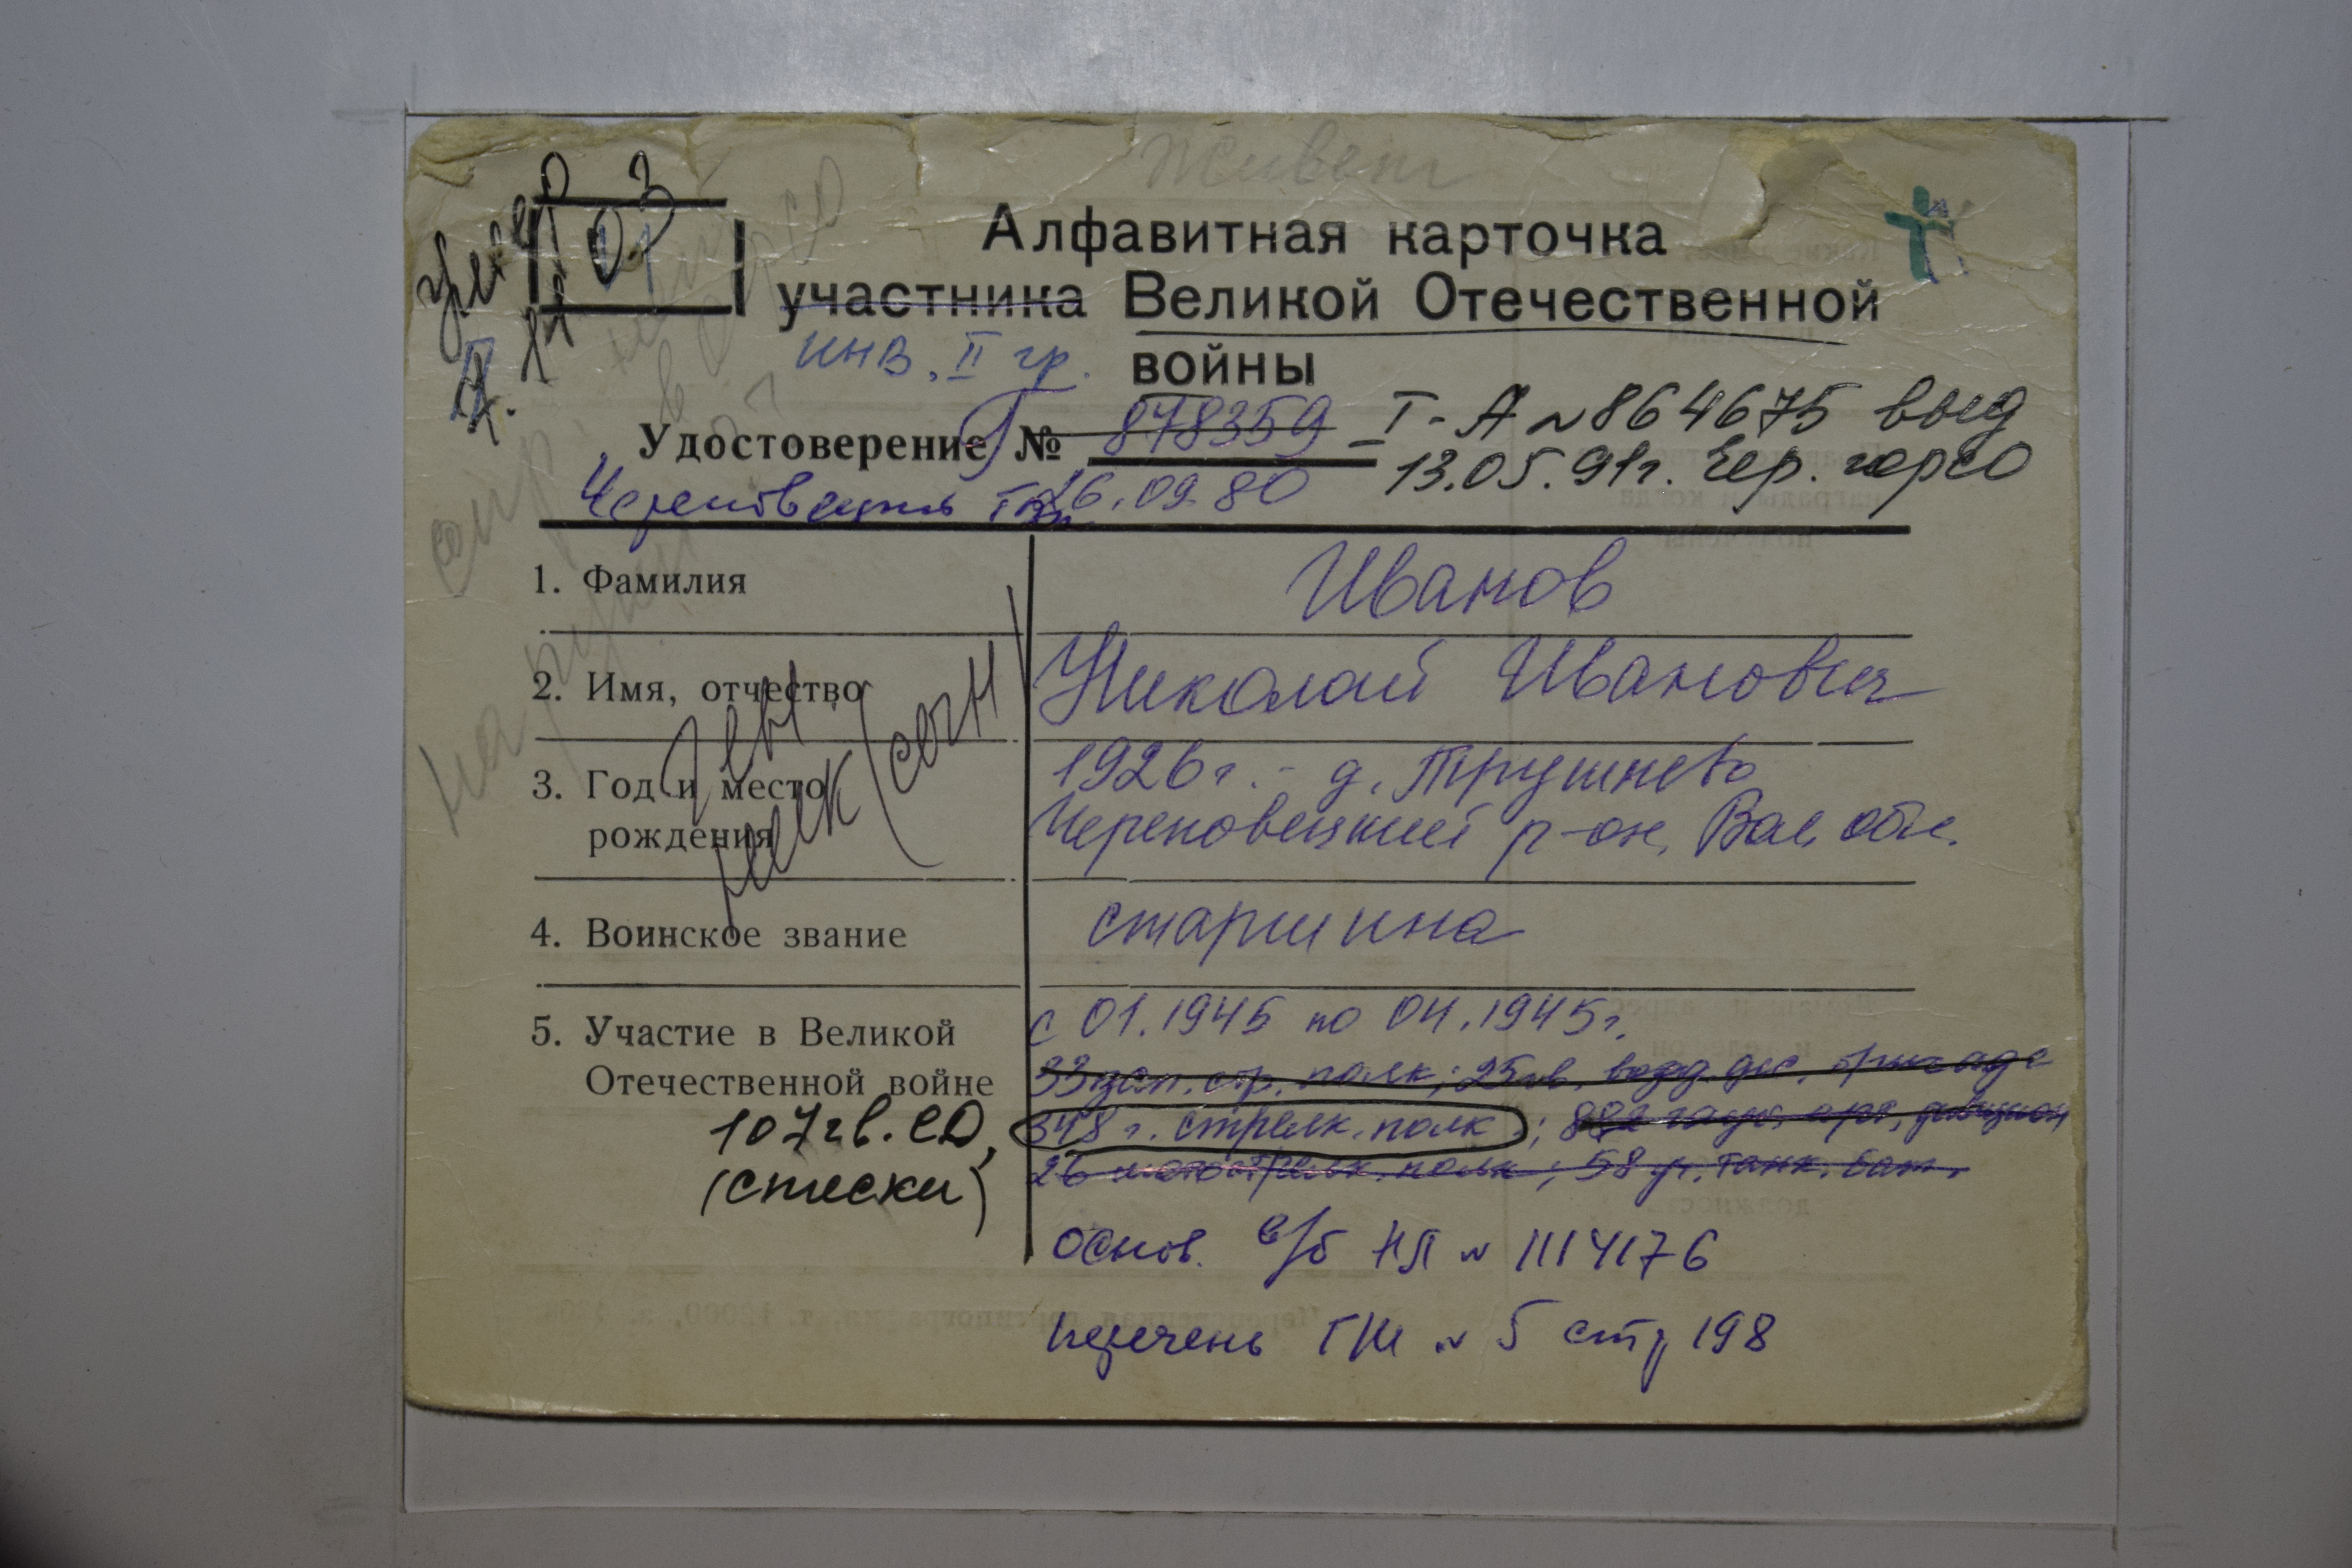 Живет
Алфавитная карточка
участника Великой Отечественной
инв. II гр. войны
Удостоверение Г № 878359 - I-А №864675 выд
Череповецкий ГВК 26.09.80 13.05.91г. Чер. горсо
1. Фамилия Иванов
2. Имя, отчество Николай Иванович
3. Год и место 1926г. - д. Трушнево
рождения Череповецкий р-он, Вол. обл.
4. Воинское звание старшина
5. Участие в Великой с 01.1945 по 04.1945г.
Отечественной войне 33 зап. стр. полк; 25 гв. возд. дес. бригада
107 гв. СД, 348 г. стрелк. полк; 882 арт. дивизион
(списки) 26 мотострелк. полк; 58 уч. танк. бат.
основ. в/б НЛ № 1114176
перечень ГШ № 5 стр 198